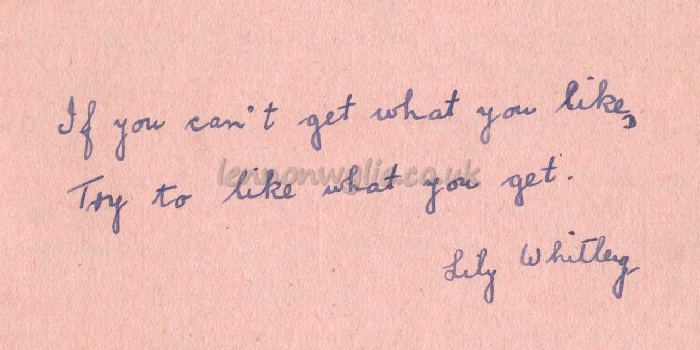 If you can't get what you like,
lennonwylie.co.uk
Try to like what you get.
Lily Whitley